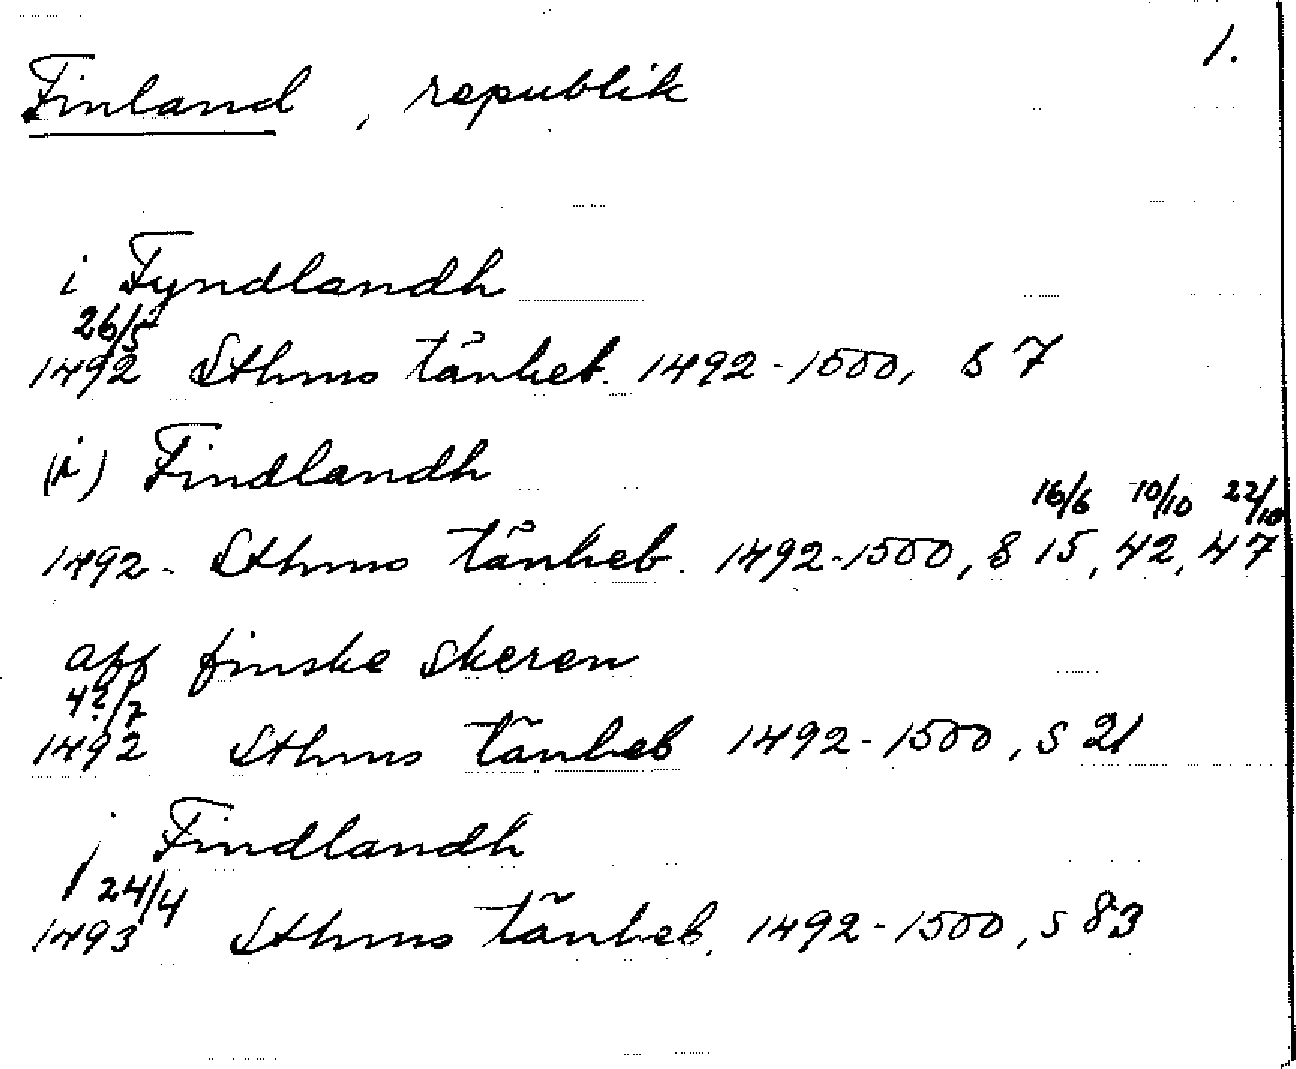 1.
Finland, republik
i Fyndlandh
26/5
1492 Sthms tänkeb. 1492-1500, s 7
(i) Findlandh
16/6 10/10 22/10
1492- Sthms tänkeb. 1492-1500, s 15, 42, 47
aff finske skeren
4?/7
1492 Sthms tänkeb 1492-1500, s 21
j Findlandh
24/4
1493 Sthms tänkeb. 1492-1500, s 83